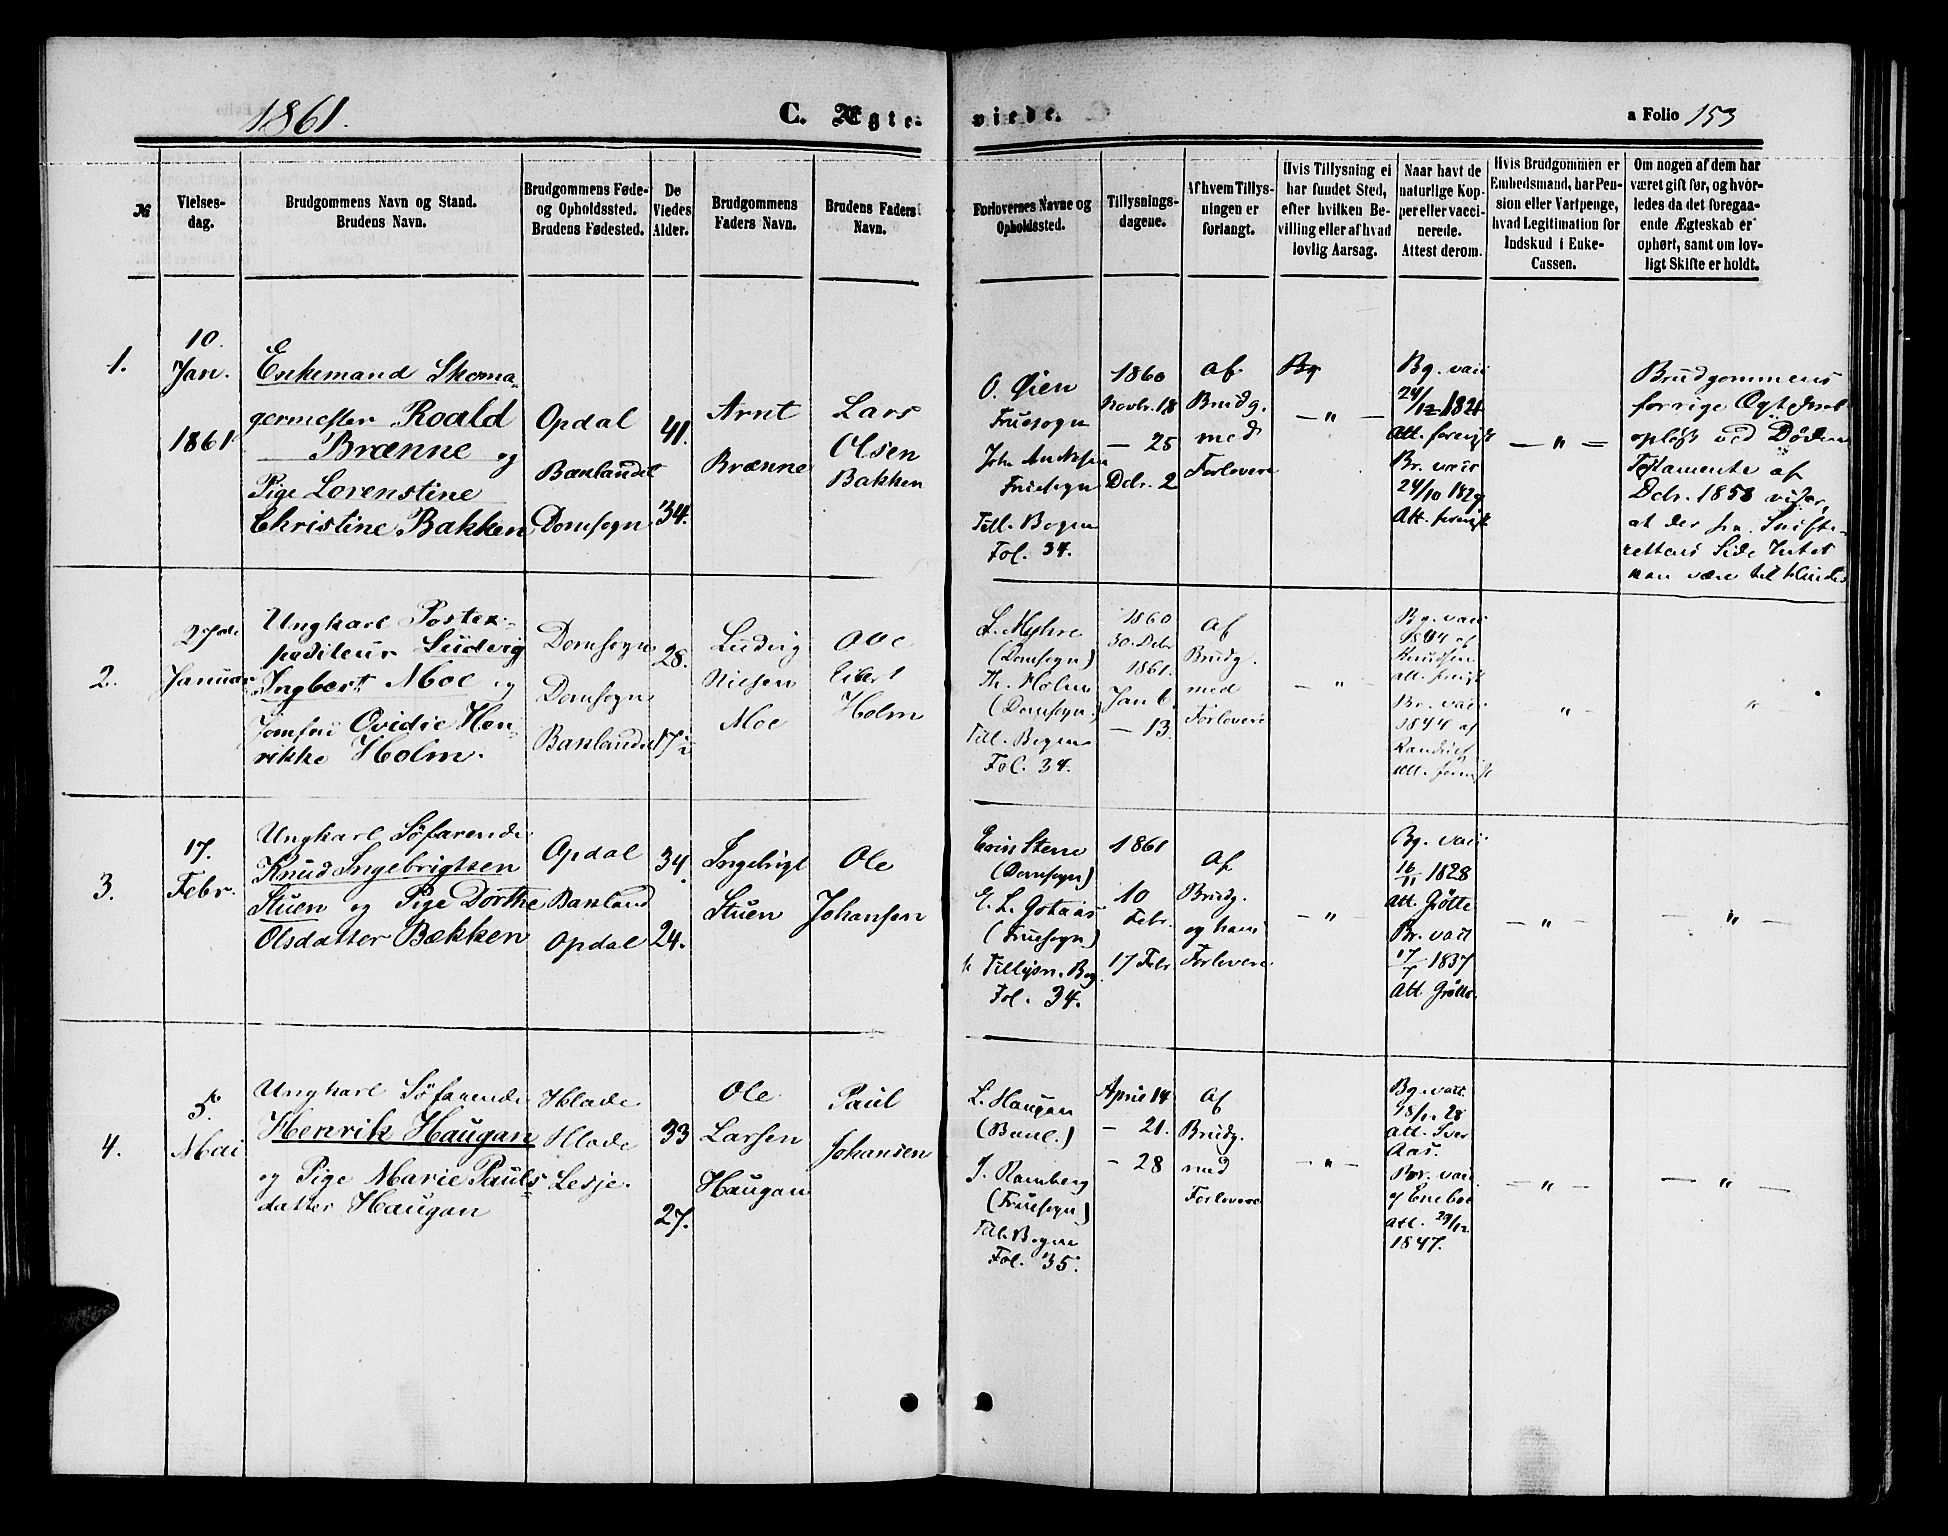 1861.
C. Ægte-
viede.
a Folio 153
№
Vielses-
dag.
Brudgommens Navn og Stand.
Brudens Navn.
Brudgommens Føde-
og Opholdssted.
Brudens Fødested.
De
Viedes
Alder.
Brudgommens
Faders Navn.
Brudens Faders
Navn.
Forlovernes Navne og
Opholdssted.
Tillysnings-
dagene.
Af hvem Tillys-
ningen er
forlangt.
Hvis Tillysning ei
har fundet Sted,
efter hvilken Be-
villing eller af hvad
lovlig Aarsag.
Naar havt de
naturlige Kop-
per eller vacci-
nerede.
Attest derom.
Hvis Brudgommen er
Embedsmand, har Pen-
sion eller Vartpenge,
hvad Legitimation for
Indskud i Enke-
Cassen.
Om nogen af dem har
været gift før, og hvor-
ledes da det foregaa-
ende Ægteskab er
ophørt, samt om lov-
ligt Skifte er holdt.
1.
10.
Jan.
1861
Enkemand Skoma-
germester Roald
Brænne og
Pige Lorenstine
Christine Bakken
Opdal
Baklandet
Domsogn
41.
34.
Arnt
Brænne
Lars
Olsen
Bakken
O. Øien
Fruesogn
Joh. Andersen
Fruesogn
Till. Bogen
Fol. 34.
1860
Novbr. 18
— 25
Dcbr. 2
af
Brudg.
med
Forlovere
— " —
Bg. vacc
24/12 1821
Att. forevist
Br. vacc
24/10 1829
Att. forevist
— " —
Brudgommens
forrige Ægteskab
opløst ved Døden
Testamente af
Dcbr. 1858 viser,
at der fra Skifte-
rettens Side Intet
kan være til Hinder
2.
27de
Januar
Ungkarl Postex-
pediteur Ludvig
Ingbert Moe og
Jomfru Ovidie Hen-
rikke Holm.
Domsogn
Domsogn
Baklandet
28.
17½
Ludvig
Nielsen
Moe
Ove
Holm
L. Myhre
(Domsogn)
Th. Holm
(Domsogn)
Till. Bogen
Fol. 34.
1860
30. Dcbr
1861
Jan 6.
— 13.
Af
Brudg.
med
Forlovere
— " —
Bg. vacc
1844 af
Knudsen
att. forevist
Br. vacc
1844 af
att. forevist
" —
"
3.
17.
Febr.
Ungkarl Söfarende
Knud Ingebrigtsen
Stuen og Pige Dorthe
Olsdatter Bækken
Opdal
Bakland
Opdal
34.
24.
Ingebrigt
Stuen
Ole
Johansen
Even Stene
(Domsogn)
E. L. Gotaas
(Fruesogn)
Tillysn. Bog
Fol. 34.
1861
10
Febr.
17 Febr
Af
Brudg.
og hans
Forlovere
— " —
Bg. vacc
16/11 1828
Att. Grötte
Br. vacc
17/7 1837
Att. Grötte.
— " —
— " —
4.
5te
Mai
Ungkarl Söfarende
Henrik Haugan
og Pige Marie Pauls-
datter Haugan
Hlade
Hlade
Lesje.
33
27.
Ole
Larsen
Haugan
Paul
Johansen
L. Haugan
(Bakl.)
J. Ramberg
(Fruesogn)
Till. Bogen
Fol. 35.
April 14
— 21.
— 28
Af
Brudg.
med
Forlovere
— " —
Bg. vacc
att. Iver
Aas.
Br. vacc
att. 29/12
1847.
— " —
— " —